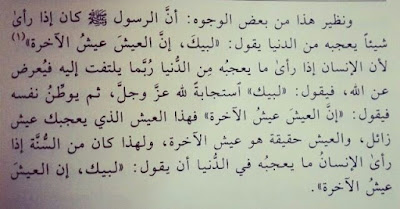 ونظير هذا من بعض الوجوه: أنَّ الرسول ﷺ كان إذا رأىٰ
شيئاً يعجبه من الدنيا يقول: «لبيك، إنَّ العيشَ عيشُ الآخرة»(١)
لأن الإنسان إذا رأىٰ ما يعجبُه مِن الدُّنيا رُبَّما يلتفت إليه فيُعرض
عن الله، فيقول: «لبيك» استجابةً لله عزَّ وجلَّ، ثم يوطِّنُ نفسه
فيقول: «إنَّ العيشَ عيشُ الآخرة» فهذا العيش الذي يعجبك عيش
زائل، والعيش حقيقة هو عيش الآخرة، ولهذا كان من السُّنَّة إذا
رأىٰ الإنسانُ ما يعجبُه في الدُّنيا أن يقول: «لبيك، إن العيشَ
عيشُ الآخرة».